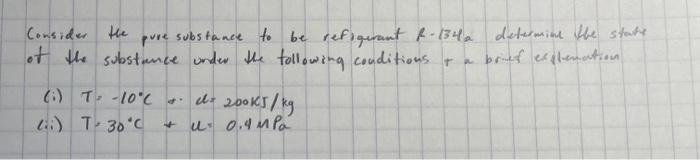 Consider the pure substance to be refigurant R-134a determine the state
of the substance under the following conditions + a brief explanation
(i) T= -10°C + u= 200KJ/kg
(ii) T= 30°C + u= 0.4 MPa